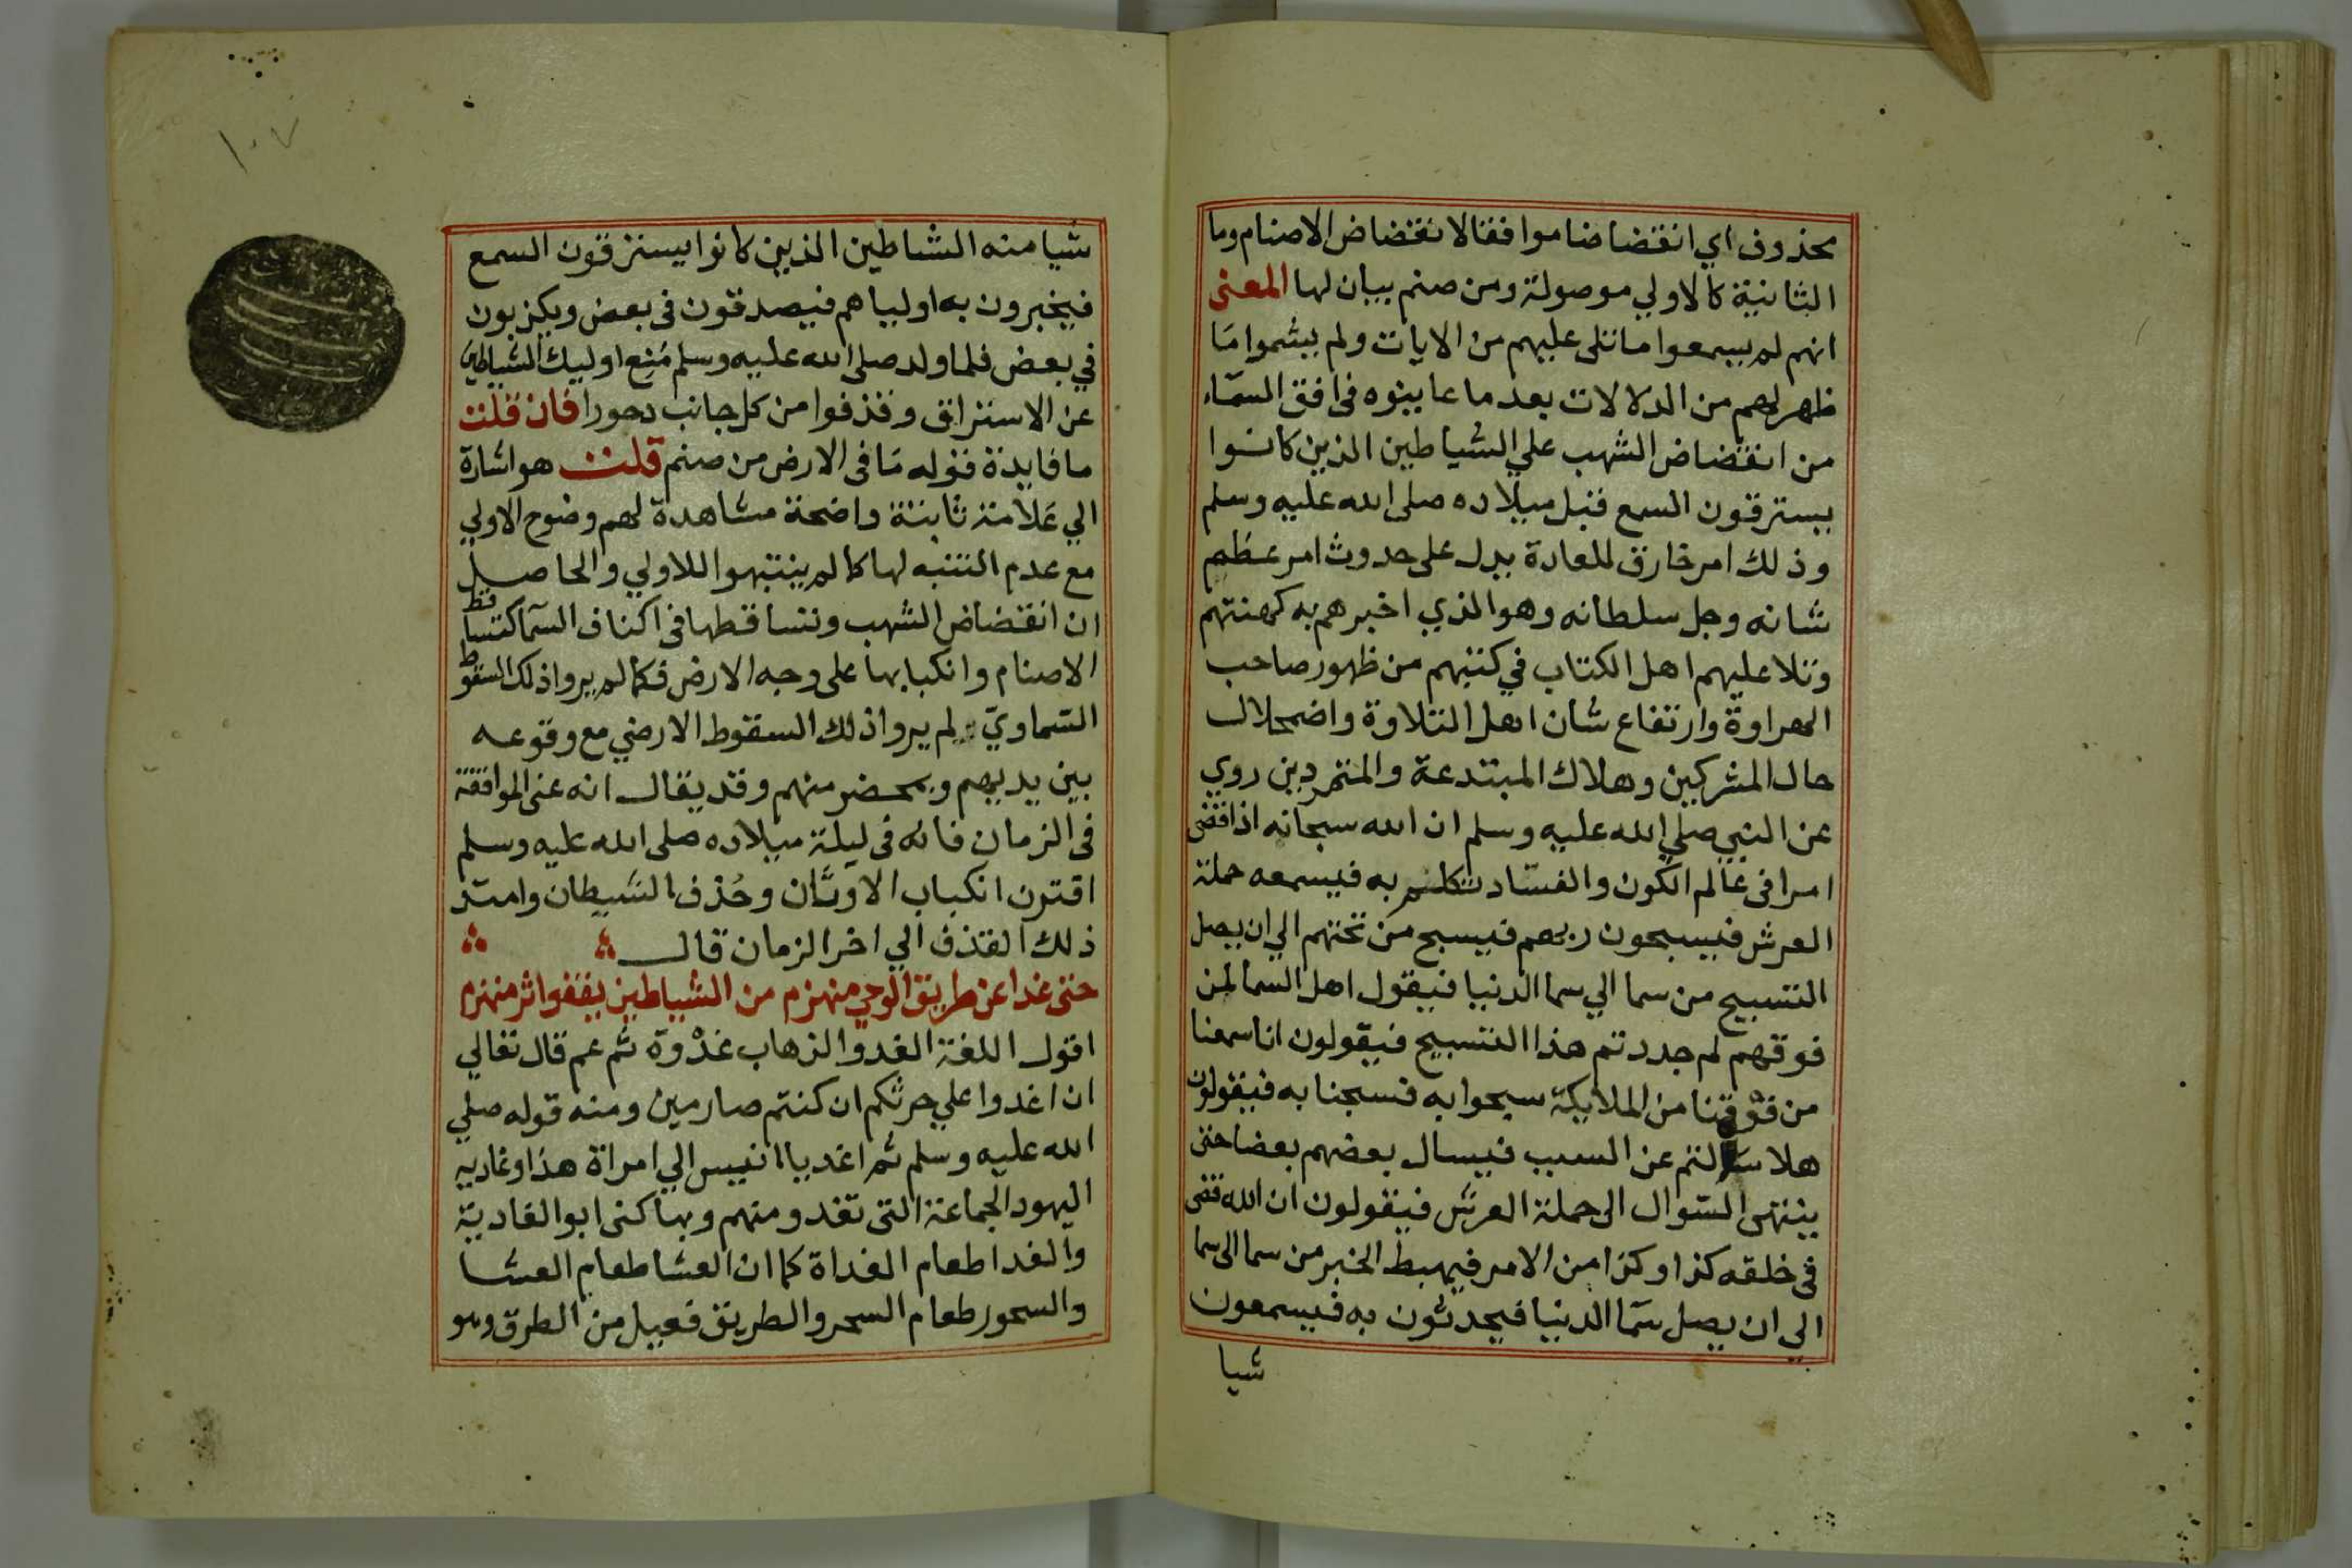 محذوف اي انقضاضا موافقا لانقضاض الاصنام وما
الثانية كالاولي موصولة ومن صنم بيان لها المعنى
انهم لم يسمعوا ما تتلى عليهم من الايات ولم يشموا ما
ظهر لهم من الدلالات بعد ما عاينوه في افق السماء
من انقضاض الشهب علي الشياطين الذين كانوا
يسترقون السمع قبل ميلاده صلى الله عليه وسلم
وذلك امر خارق للعادة يدل على حدوث امر عظم
شانه وجل سلطانه وهو الذي اخبرهم به كهنتهم
وتلا عليهم اهل الكتاب في كتبهم من ظهور صاحب
الهراوة وارتفاع شان اهل التلاوة واضمحلال
حال المشركين وهلاك المبتدعة والمتمردين روي
عن النبي صلي الله عليه وسلم ان الله سبحانه اذا قضى
امرا في عالم الكون والفساد تكلم به فيسمعه حملة
العرش فيسبحون ربهم فيسبح من تحتهم الي ان يصل
التسبيح من سما الي سما الدنيا فيقول اهل السما لمن
فوقهم لم جددتم هذا التسبيح فيقولون انا سمعنا
من فوقنا من الملايكة سبحوا به فسبحنا به فيقولون
هلا سالتم عن السبب فيسال بعضهم بعضا حتى
ينتهى السوال الى حملة العرش فيقولون ان الله قضى
في خلقه كذا وكذا من الامر فيهبط الخبر من سما الى سما
الي ان يصل سما الدنيا فيحدثون به فيسمعون
شيا
١٠٧
شيا منه الشاطين الذين كانوا يسترقون السمع
فيخبرون به اولياهم فيصدقون في بعض ويكذبون
في بعض فلما ولد صلى الله عليه وسلم مُنع اوليك الشياطين
عن الاستراق وقذفوا من كل جانب دحورا فان قلت
ما فايدة قوله ما في الارض من صنم قلت هو اشارة
الي علامة ثابتة واضحة مشاهدة لهم وضوح الاولي
مع عدم التنبه لها كما لم ينتبهوا للاولي والحاصل
ان انقضاض الشهب وتساقطها في اكناف السما كتساقط
الاصنام وانكبابها على وجه الارض فكما لم يروا ذلك السقوط
السماوي لم يروا ذلك السقوط الارضي مع وقوعه
بين يديهم وبمحضر منهم وقد يقال انه عنى الموافقة
في الزمان فانه في ليلة ميلاده صلى الله عليه وسلم
اقترن انكباب الاوثان وحُذف الشيطان وامتد
ذلك القذف الي اخر الزمان قال
حتى غدا عن طريق الوحي منهزم من الشياطين يقفوا اثر منهزم
اقول اللغة الغدو الذهاب غدْوة ثم عم قال تعالي
ان اغدوا علي حرثكم ان كنتم صارمين ومنه قوله صلي
الله عليه وسلم ثم اغد يا انيس الي امراة هذا وغادية
اليهود الجماعة التى تغدو منهم وبها كنى ابو الغادية
والغدا طعام الغداة كما ان العشا طعام العشا
والسحور طعام السحر والطريق فعيل من الطرق وهو